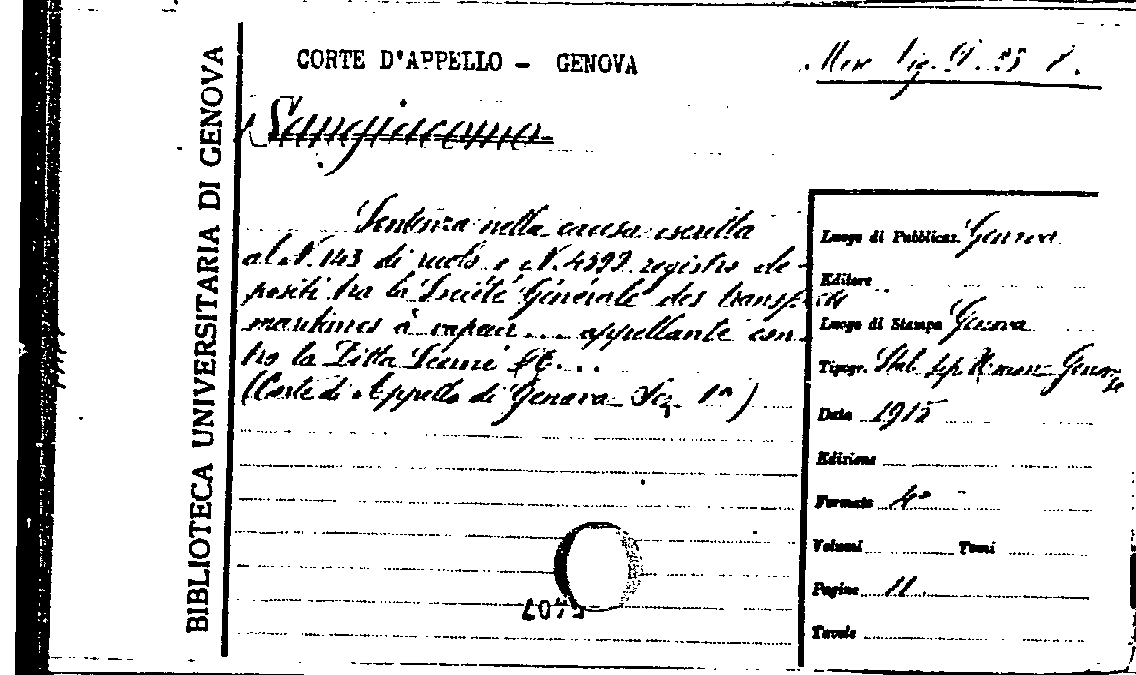 BIBLIOTECA UNIVERSITARIA DI GENOVA
CORTE D'APPELLO - GENOVA
Sangiacomo
Sentenza nella causa iscritta
al N. 143 di ruolo e N. 4392 registro de-
positi tra la Société Générale des transports
maritimes à vapeur... appellante con-
tro la Ditta
(Corte di Appello di Genova Sez. 1ª)
Luogo di Pubblicaz. Genova
Editore
Luogo di Stampa Genova
Tipogr. Stab. Genova
Data 1915
Edizione
Formato 4°
Volumi Tomi
Pagine 11.
Tavole